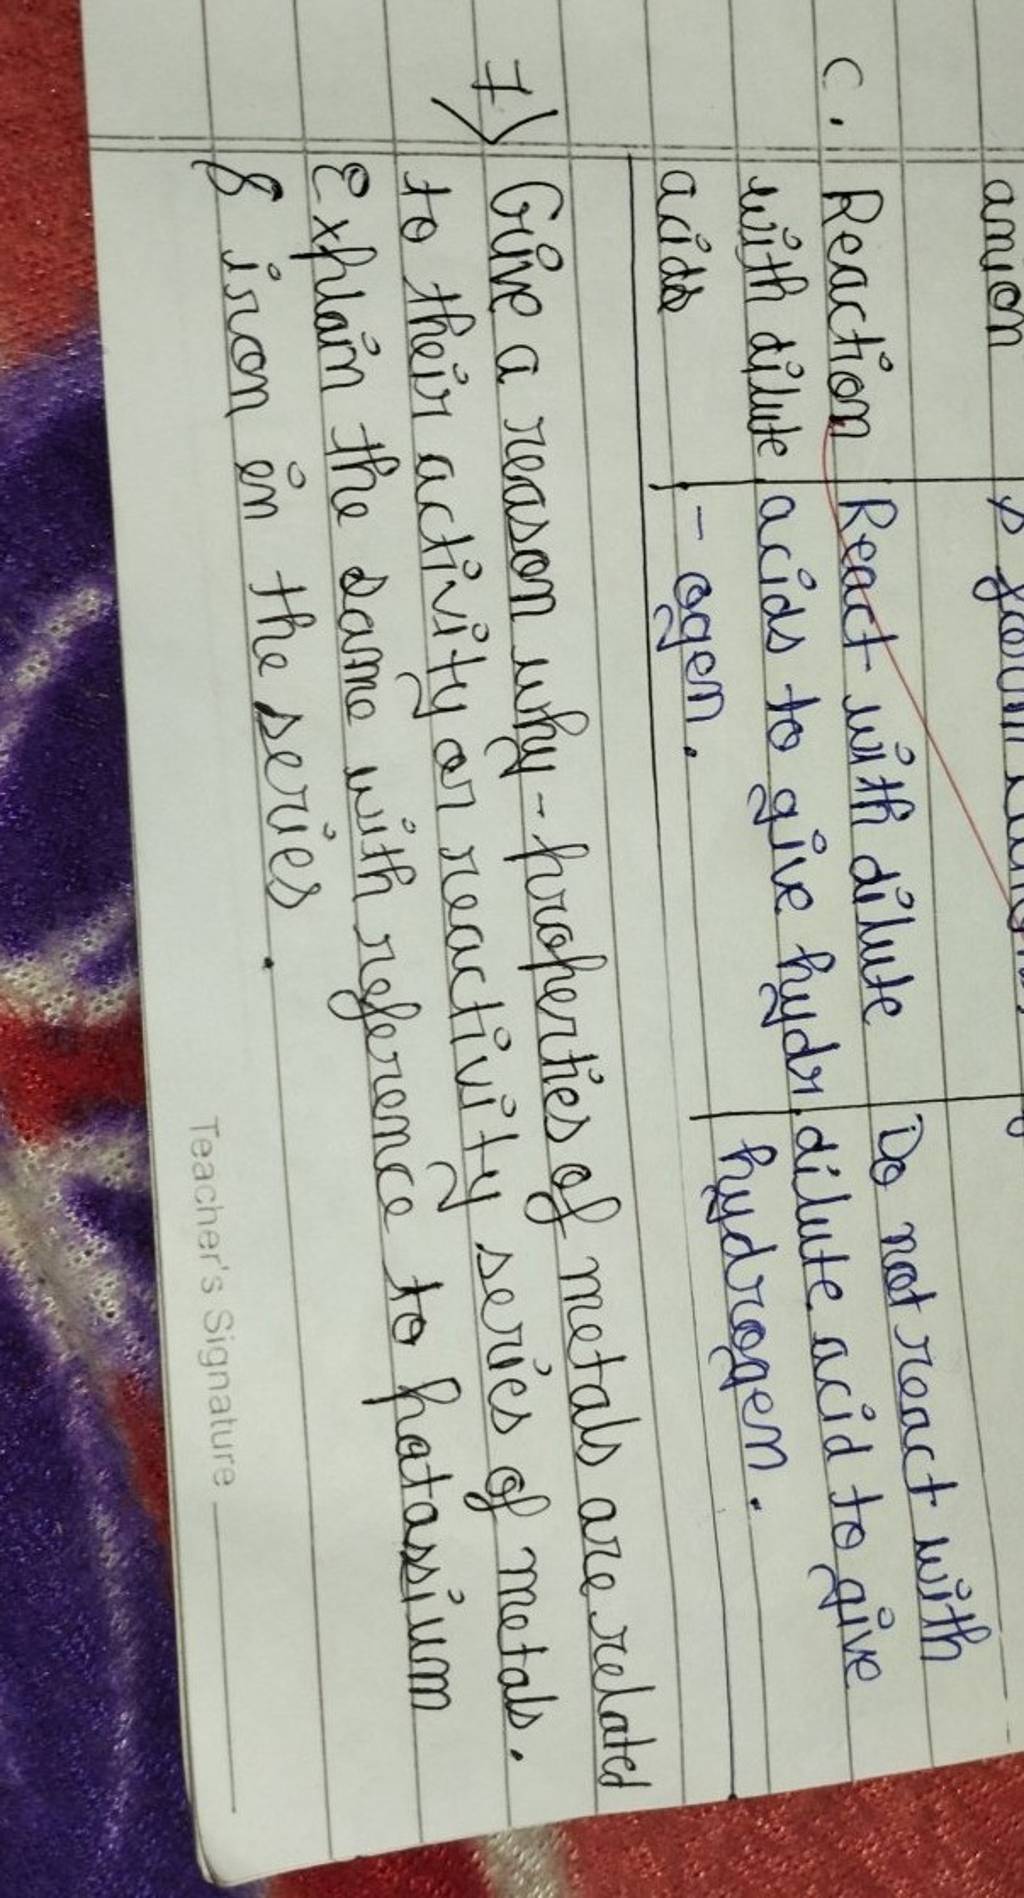 anion
C. Reaction React with dilute Do not react with
with dilute acids to give hydr dilute acid to give
acids - ogen. hydrogen.
7) Give a reason why - properties of metals are related
to their activity or reactivity series of metals.
Explain the same with reference to potassium
& iron in the series.
Teacher's Signature